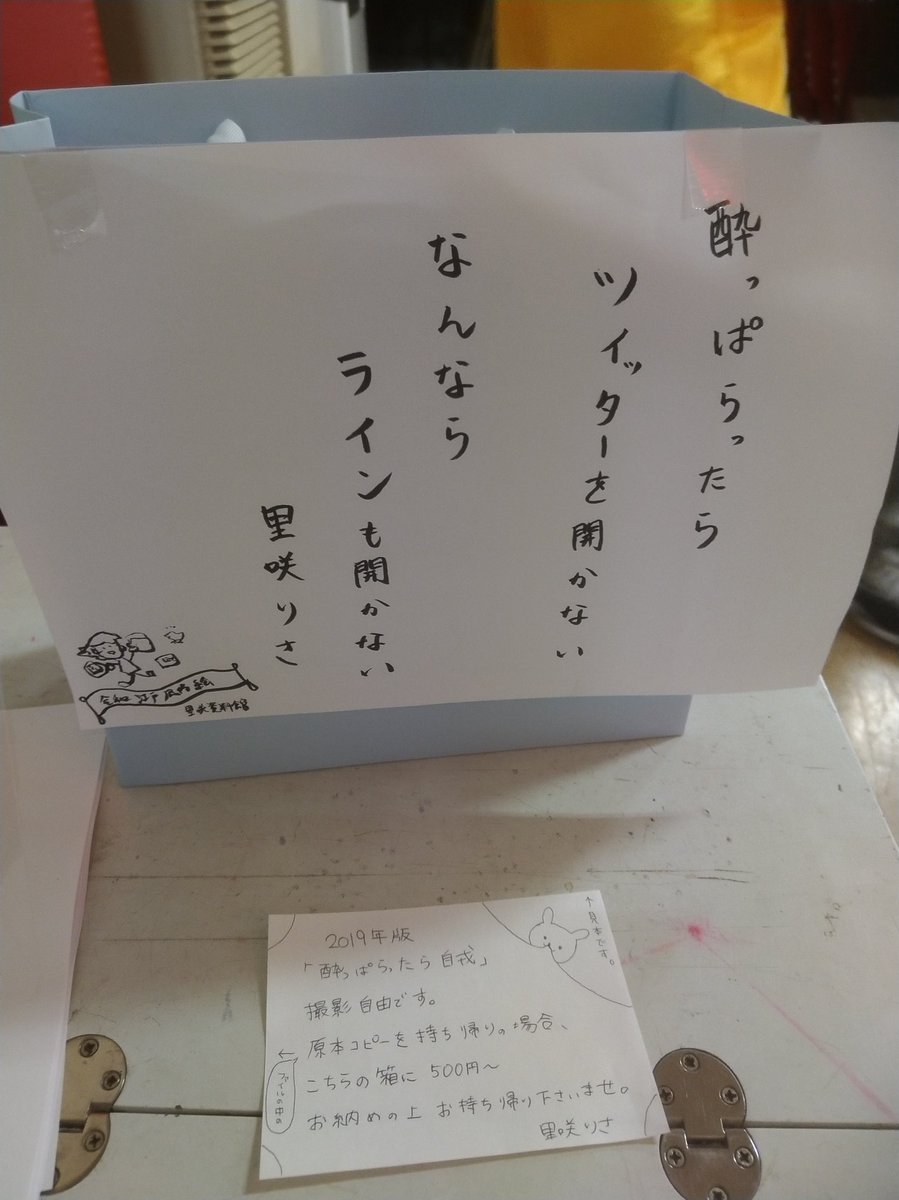 酔っぱらったら
ツイッターを開かない
なんなら
ラインも開かない
里咲りさ
令和江戸
里咲資料館
↑見本です。
2019年版
「酔っぱらったら自戒」
撮影自由です。
原本コピーを持ち帰りの場合、
こちらの箱に 500円〜
お納めの上 お持ち帰り下さいませ。
里咲りさ
←ファイルの中の